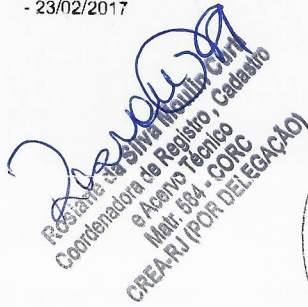 - 23/02/2017
Rosiane da Silva Moulin Curti
Coordenadora de Registro, Cadastro
e Acervo Técnico
Matr. 584 - CORC
CREA-RJ (POR DELEGAÇÃO)